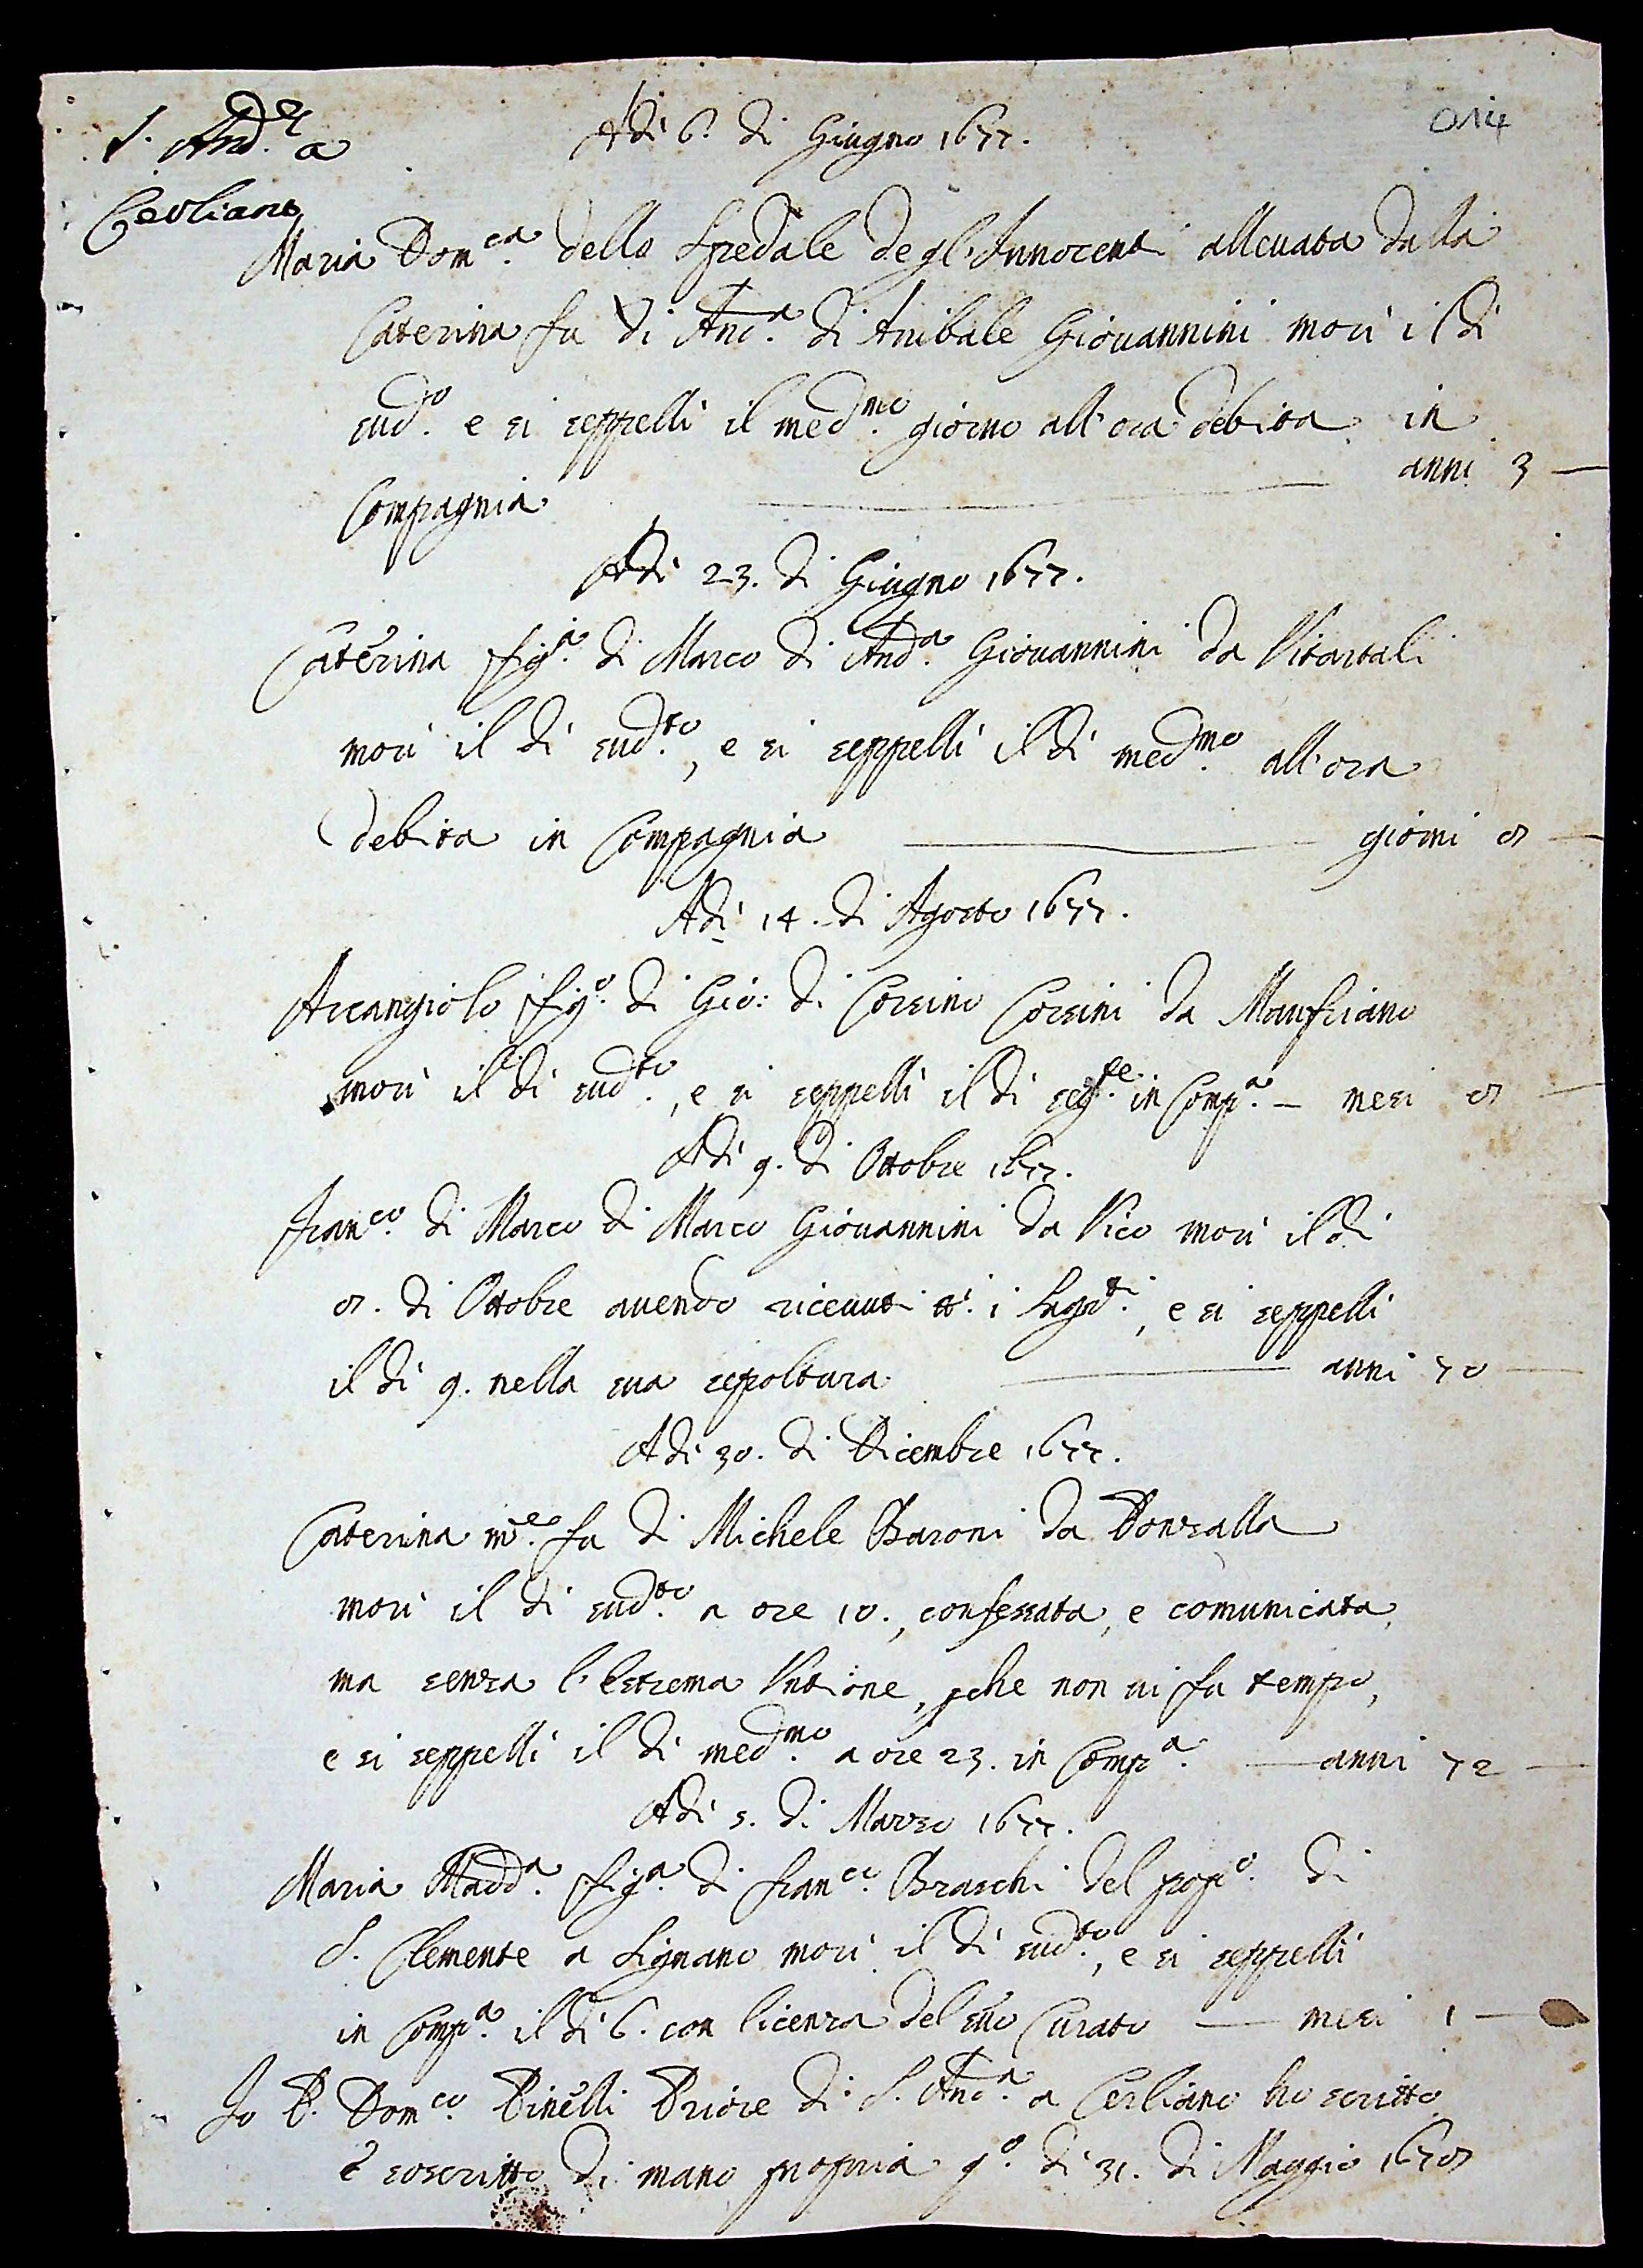 S. And.ª a
Cerliano
014
Adi 6. di Giugno 1677.
Maria Dom.ca dello Spedale degl'Innocenti alleuata dalla
Caterina fu di And.ª di Anibale Giouannini morì il dì
sud.º e si seppellì il med.mo giorno all'ora debita in
Compagnia anni 3
Adì 23. di Giugno 1677.
Caterina fig.ª di Marco di And.ª Giouannini da Vitartali
morì il dì sud.to, e si seppellì il dì med.mo all'ora
debita in Compagnia giorni 8
Adì 14. di Agosto 1677.
Arcangiolo fig.º di Gio: di Corsino Corsini da
morì il dì sud.to, e si seppellì il dì seg.te in Comp.ª mesi 8
Adì 9. di Ottobre 1677.
Fran.co di Marco di Marco Giouannini da Vico morì il dì
8. di Ottobre auendo riceuuti tt.i i Sagr.ti, e si seppellì
il dì 9. nella sua sepoltura anni 70
Adì 30. di Dicembre 1677.
Caterina m.e fu di Michele Baroni da Ponzalla
morì il dì sud.to a ore 10., confessata, e comunicata,
ma senza l'Estrema Untione, pche non ui fu tempo,
e si seppellì il dì med.mo a ore 23. in Comp.ª anni 72
Adì 5. di Marzo 1677.
Maria Madd.ª fig.ª di Fran.co Braschi del pop.º di
S. Clemente a Signano morì il dì sud.to, e si seppellì
in Comp.ª il dì 6. con licenza del suo Curato mesi 1
Io P. Dom.co Pinelli Priore di S. And.ª a Cerliano ho scritto
e soscritto di mano propria q.º dì 31. di Maggio 1678